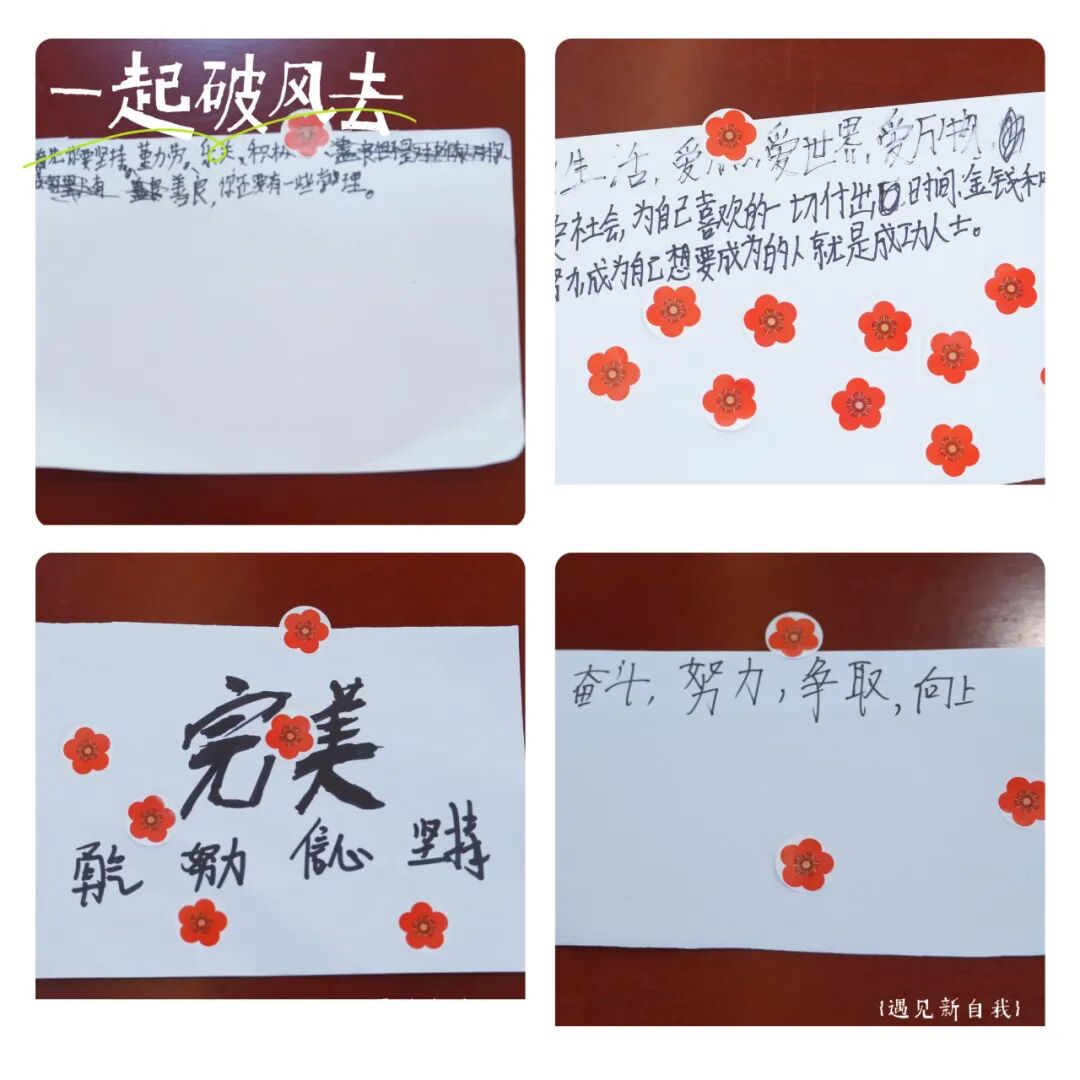 一起破风去
要坚持。勤力劳。积极
善良,你还要有一些
生活,爱 爱世界,爱万物,
社会,为自己喜欢的一切付出 时间、金钱和
努力,成为自己想要成为的人就是成功人士。
完美
勇气 努力 信心 坚持
奋斗,努力,争取,向上
{遇见新自我}